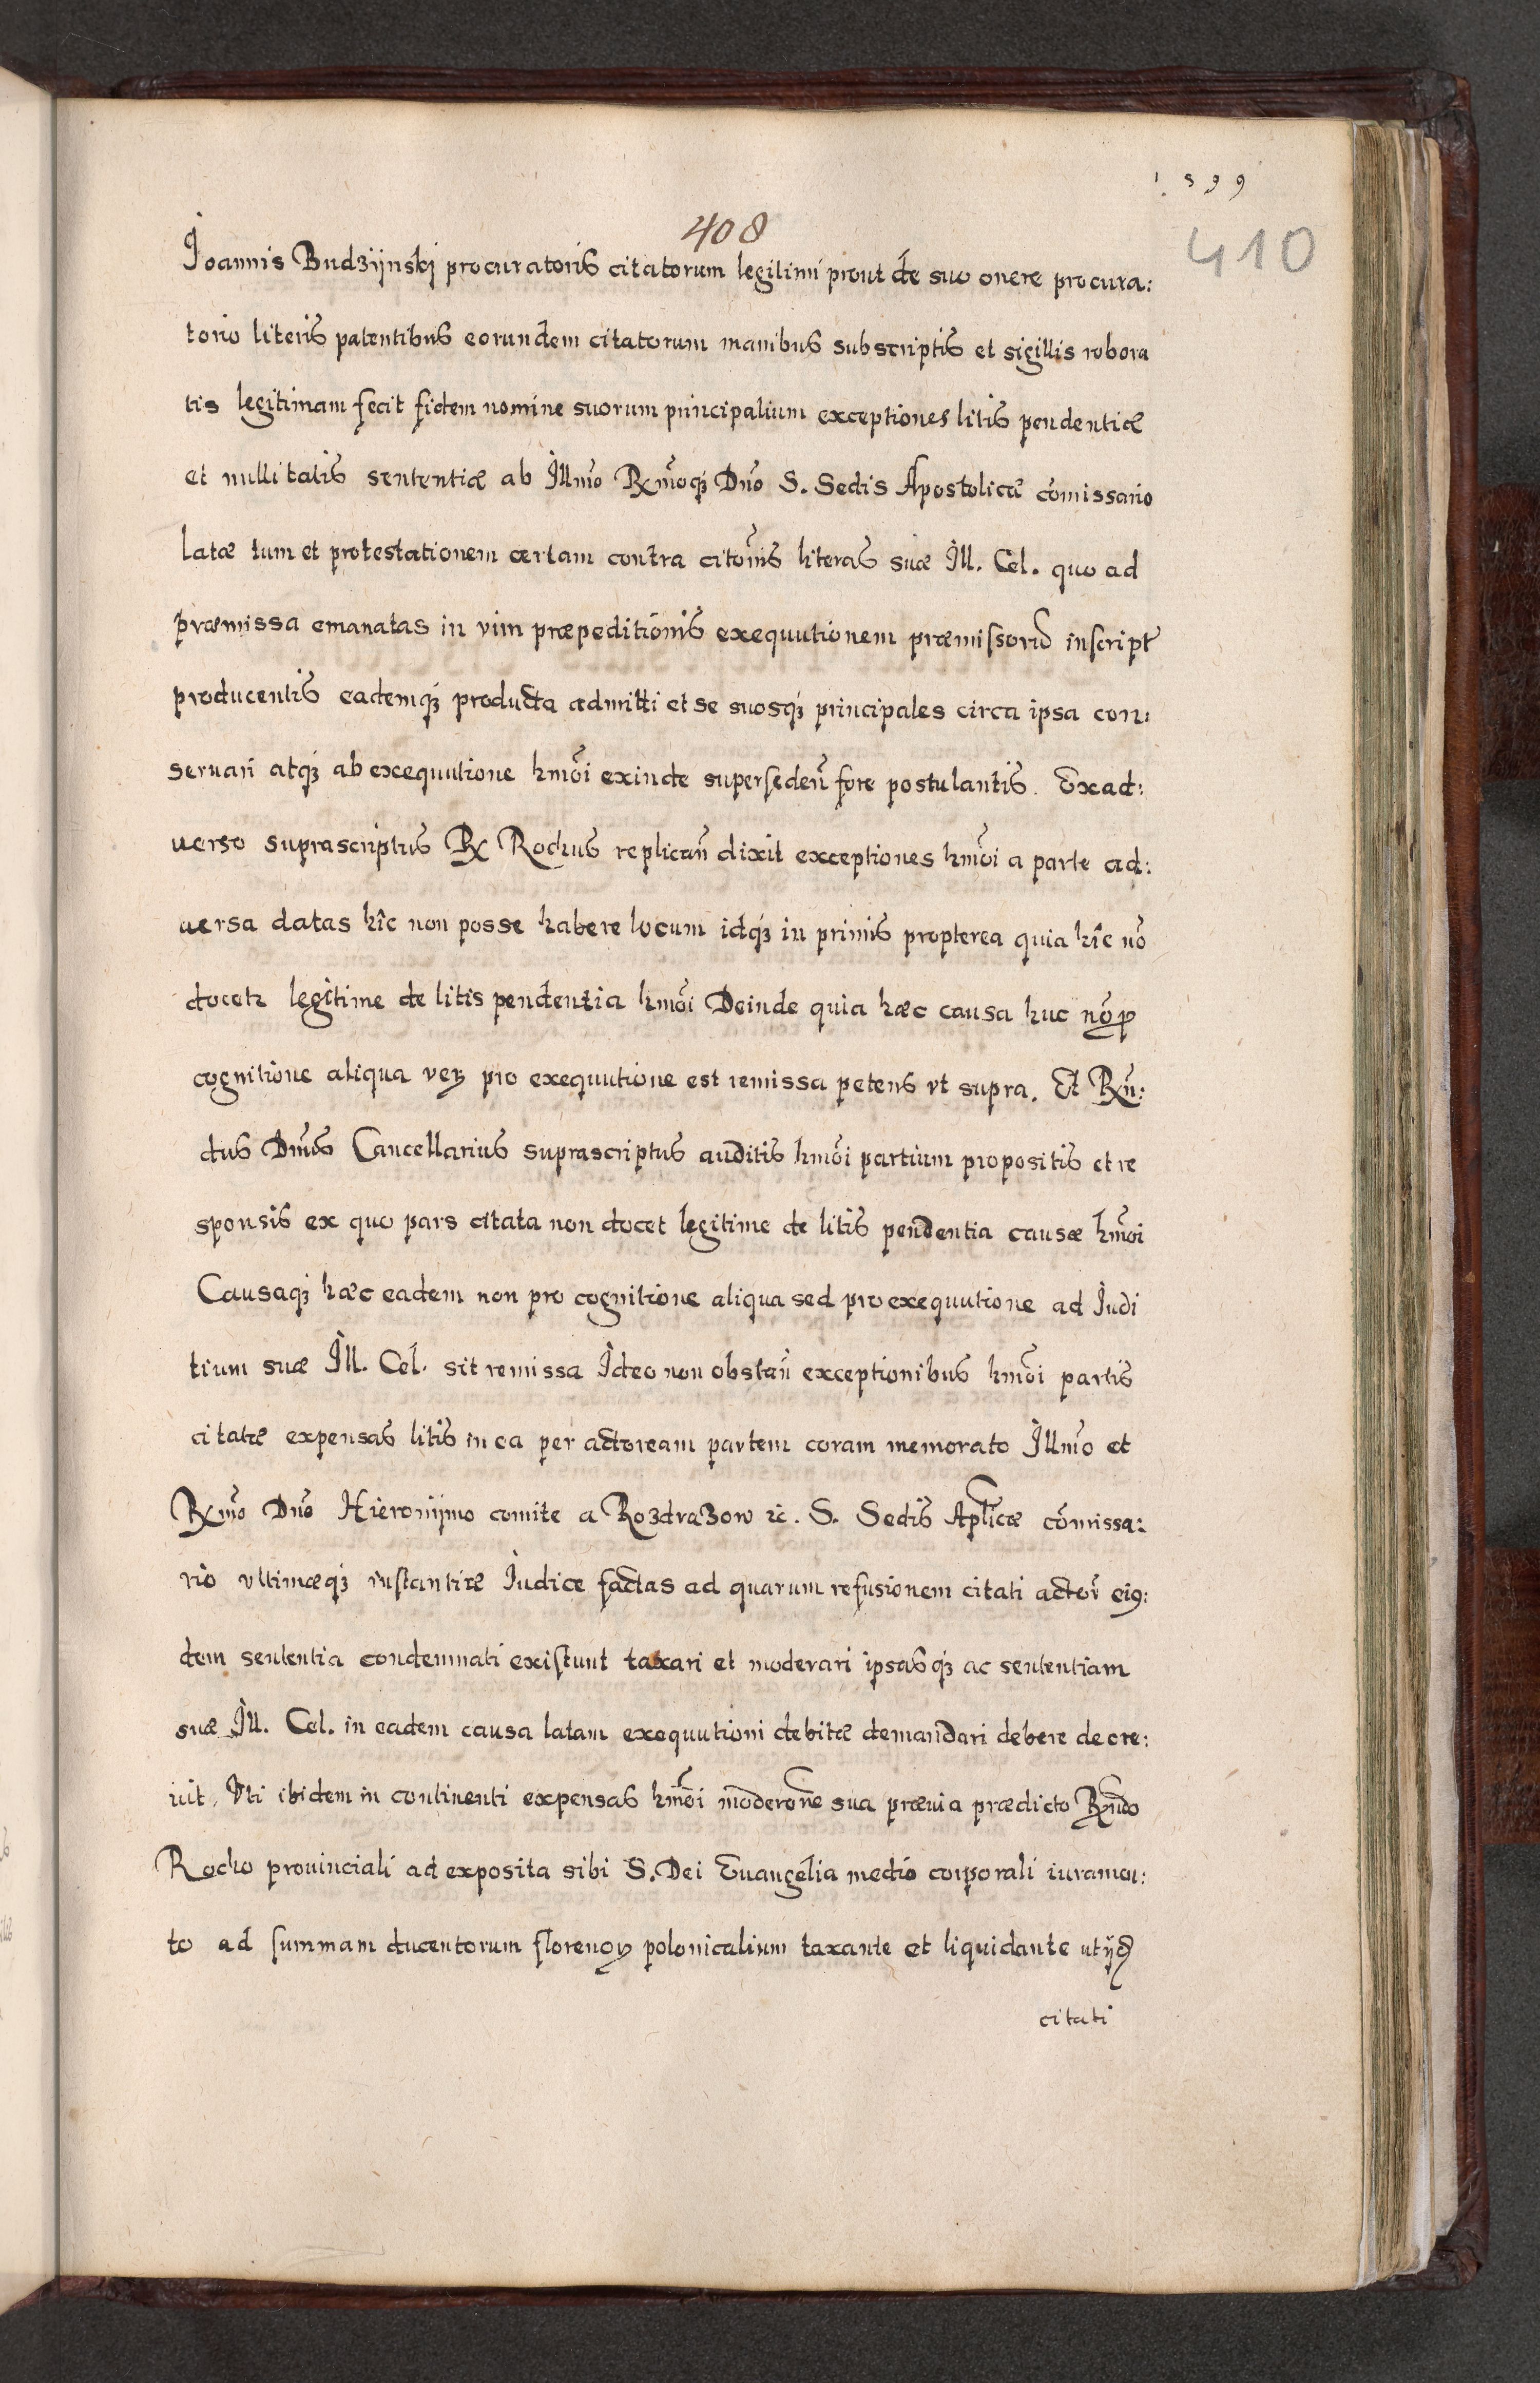 1599
408
410
Ioannis Budzijnskj procuratoris citatorum legitimi prout de suo onere procura:
torio literis patentibus eorundem citatorum manibus subscriptis et sigillis robora
tis legitimam fecit fidem nomine suorum principalium exceptiones litis pendentiæ
et nullitatis sententiæ ab Illmo Rxmoq3 Dno S. Sedis Apostolicæ comissario
latæ tum et protestationem certam contra citonis literas suæ Ill. Cel. quo ad
præmissa emanatas in vim præpeditionis exequutionem præmissorum inscript
producentis eademq3 producta admitti et se suosq3 principales circa ipsa con:
seruari atq3 ab exequutione hmoi exinde supersedeñ fore postulantis. Exad:
uerso suprascriptus Rx Rochus replicañ dixit exceptiones hmoi a parte ad:
uersa datas hîc non posse habere locum idq3 in primis propterea quia hîc nõ
docetr legitime de litis pendentia hmõi Deinde quia hæc causa huc nõ p
cognitione aliqua verz pro exequutione est remissa petens vt supra. Et Rxñ:
dus Dnus Cancellarius suprascriptus auditis hmõi partium propositis et re
sponsis ex quo pars citata non docet legitime de litis pendentia causæ hmõi
Causaq3 hæc eadem non pro cognitione aliqua sed pro exequutione ad Iudi
tium suæ Ill. Cel. sit remissa Ideo non obstañ exceptionibus hmõi partis
citatæ expensas litis in ea per actoream partem coram memorato Illmo et
Rxmo Dno Hieronijmo comite a Rozdrazow ꝛc. S. Sedis Aplicæ cõmissa:
rio vltimæq3 instantiæ Iudice factas ad quarum refusionem citati actori eiꝰ:
dem sententia condemnati existunt taxari et moderari ipsasq3 ac sententiam
suæ Ill. Cel. in eadem causa latam exequutioni debitæ demandari debere decre:
uit, Vti ibidem in continenti expensas hmõi moderone sua præuia prædicto Rxndo
Rocho prouinciali ad exposita sibi S. Dei Euangelia medio corporali iuramen:
to ad summam ducentorum florenoꝝ polonicalium taxante et liquidante utijdē
citati